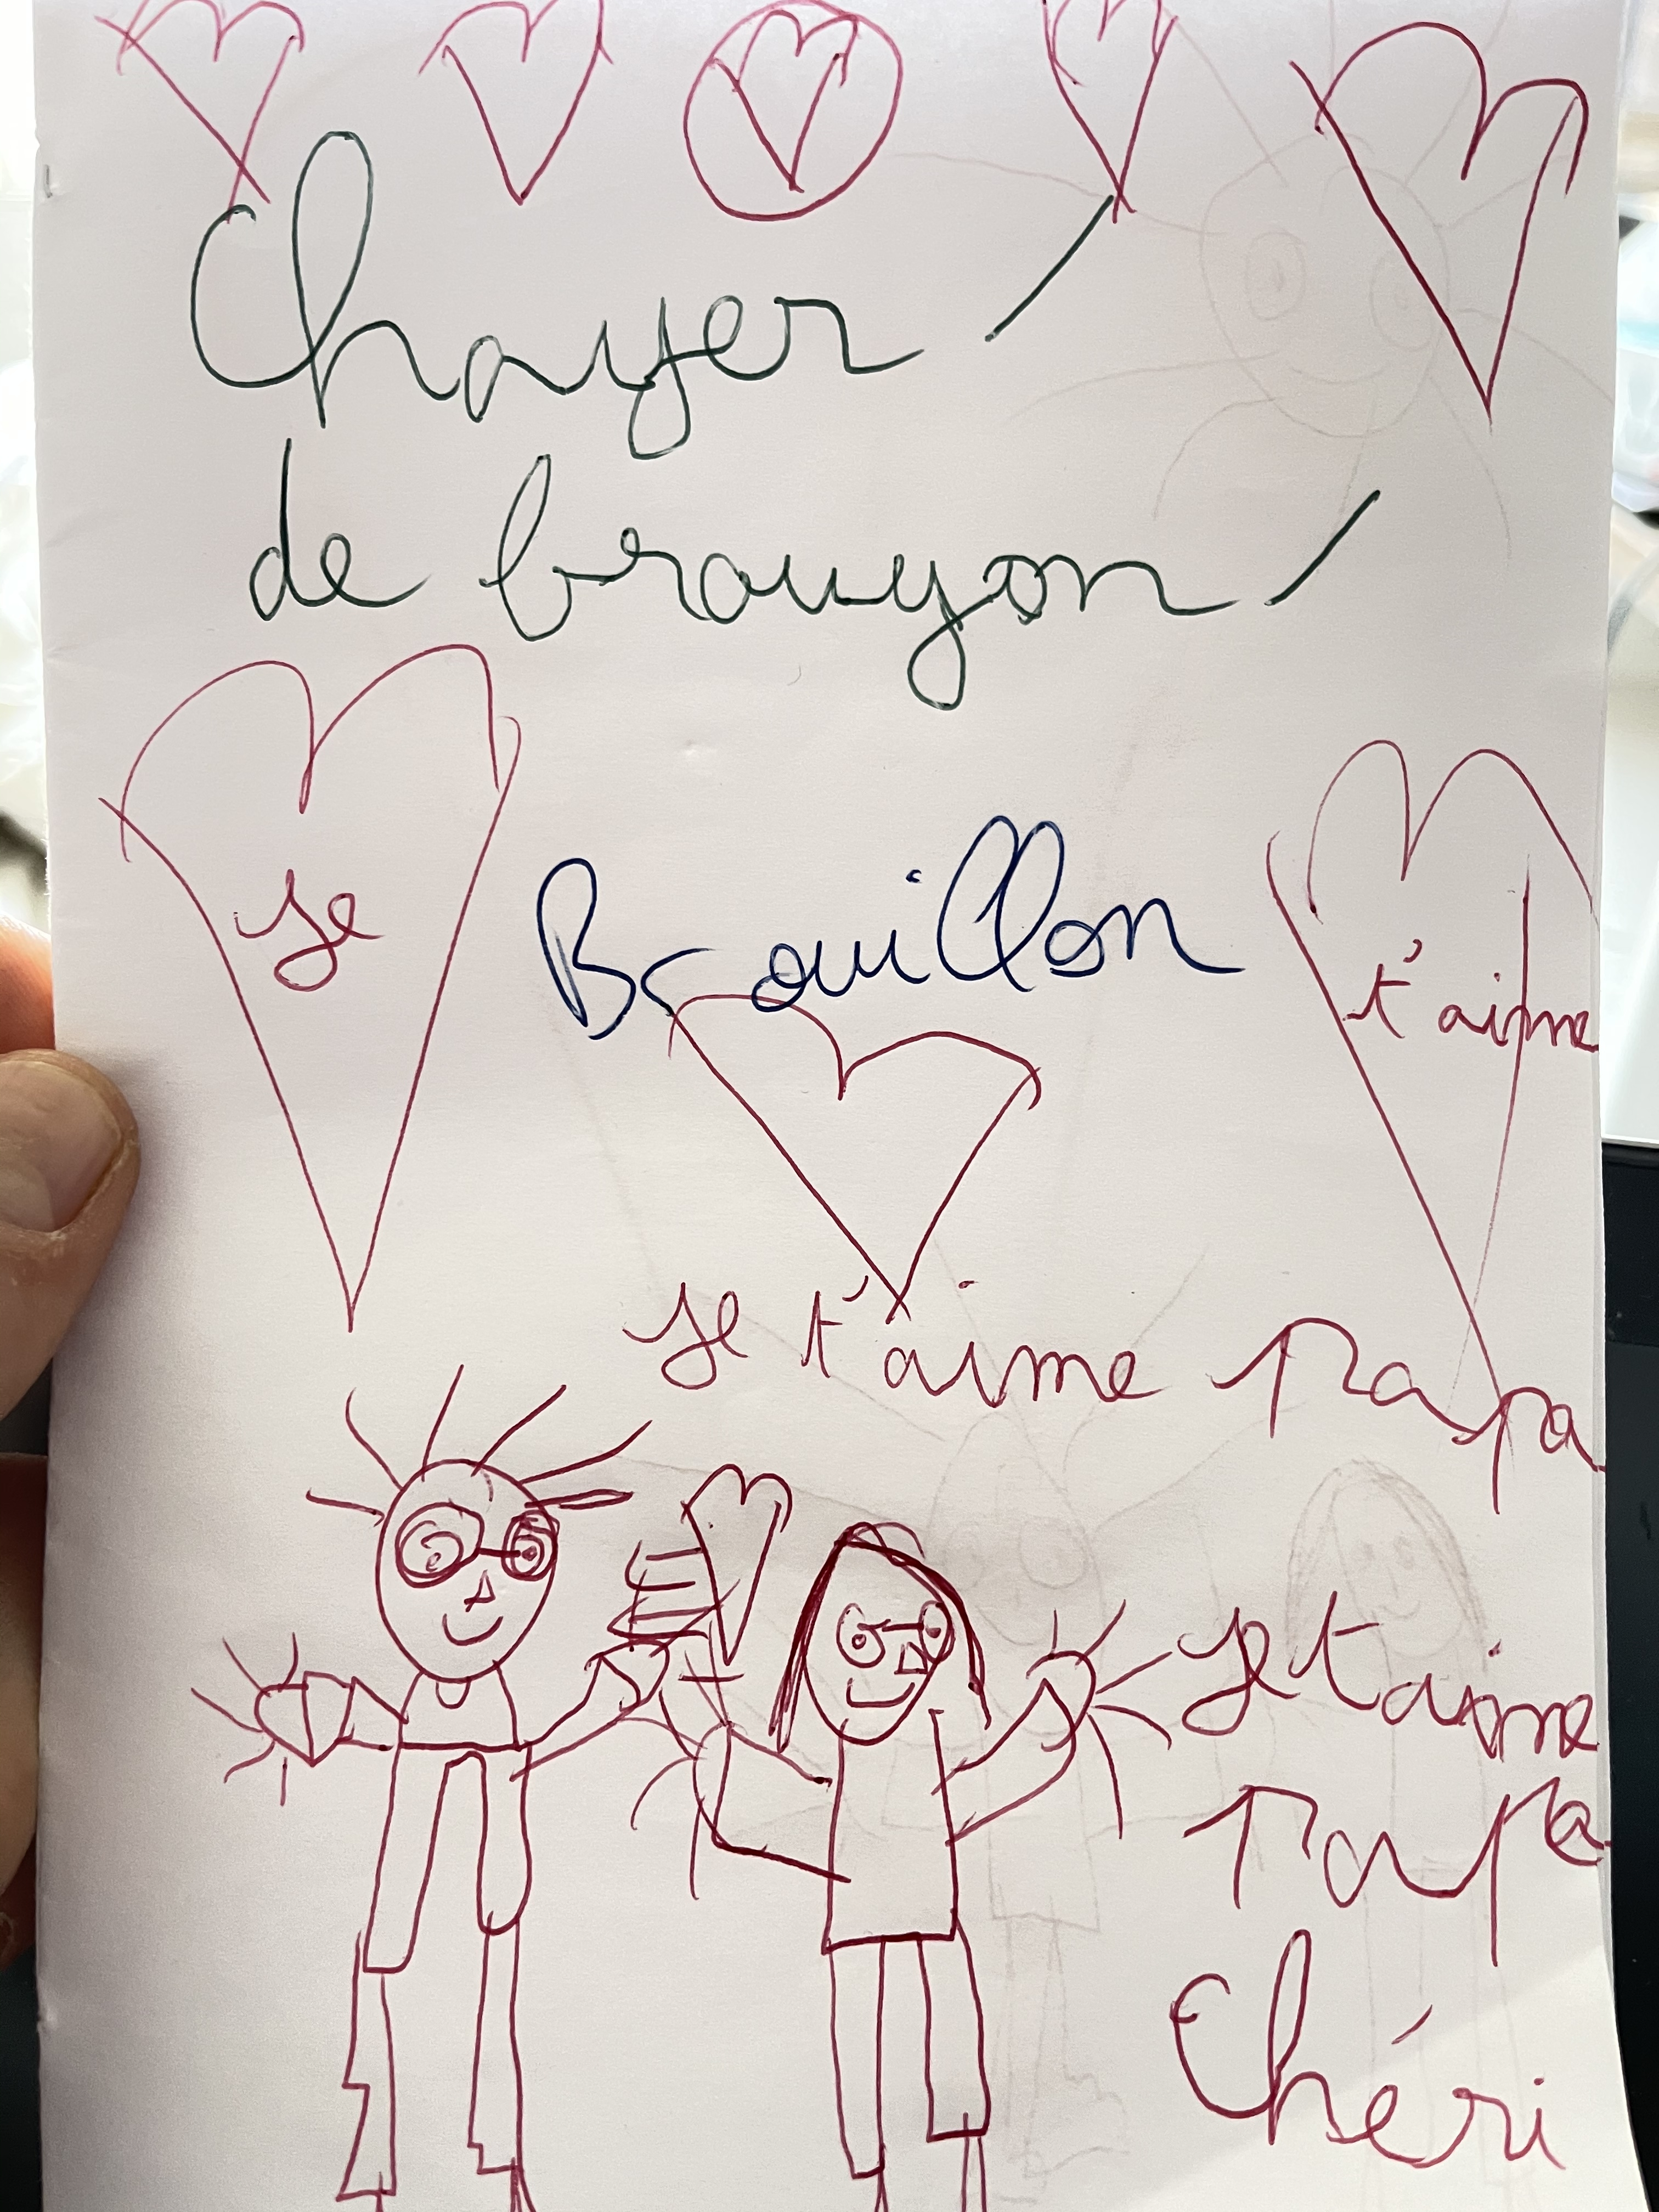 Chayer
de brouyon
Je
Brouillon
t'aime
Je t'aime papa
Je t aime
papa
Chéri